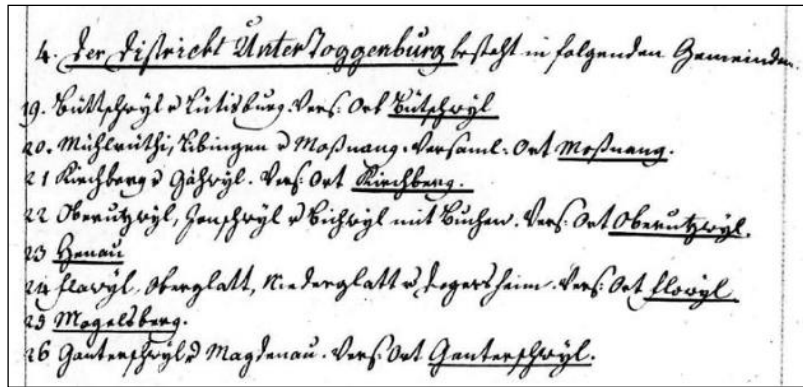 4. Der District UnterToggenburg besteht in folgenden Gemeinden.
19. Büttschwyl u Lütisburg. Vers: Ort Bütschwyl
20. Mühlrüthi, Libingen u Moßnang. Versaml: Ort Moßnang.
21 Kirchberg u Gähwyl. Vers: Ort Kirchberg.
22 Oberutzwyl, Jonschwyl u Bichwyl mit Buchen. Vers: Ort Oberutzwyl.
23 Henau
24 Flawyl, Oberglatt, Niederglatt u Degersheim. Vers: Ort Flowyl
25 Mogelsberg.
26 Ganterschwyl u Magdenau. Vers: Ort Ganterschwyl.